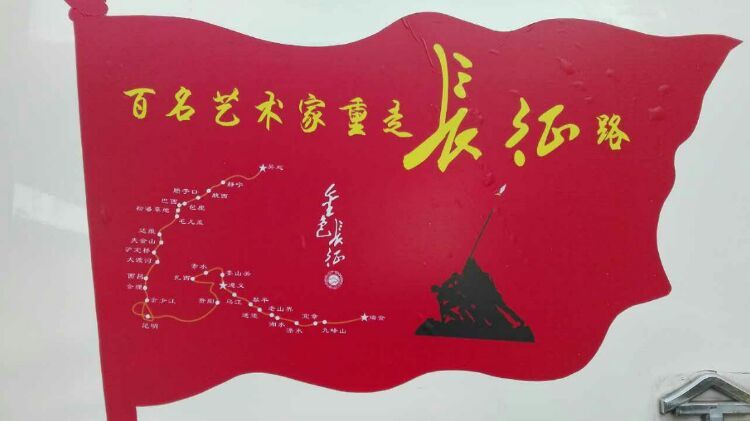 百名艺术家重走長征路
吴起
静宁
腊子口
陕西
巴西
包座
松潘草地
毛儿盖
达维
夹金山
泸定桥
大渡河
西昌
会理
金沙江
昆明
赤水
娄山关
扎西
遵义
贵阳
乌江
黎平
通道
老山界
湘水
宜章
潇水
九峰山
瑞金
金色
長征